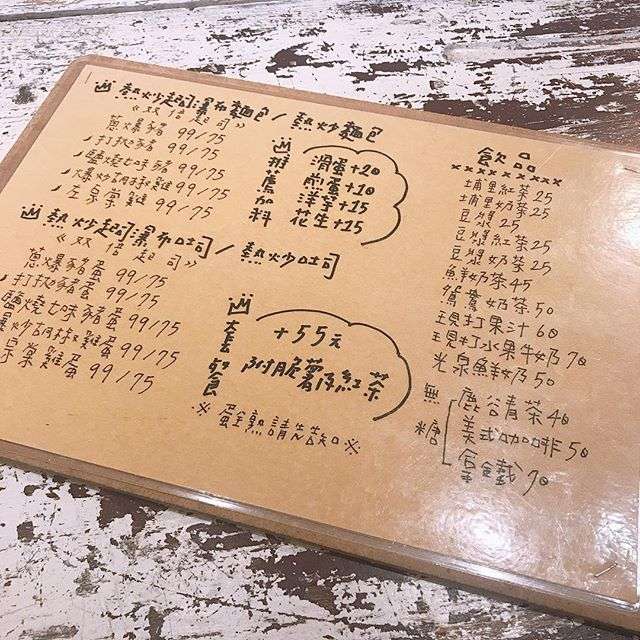 熱炒起司瀑布麵包/熱炒麵包
《双倍起司》
蔥爆豬 99/75
打拋豬 99/75
鹽燒七味豬 99/75
爆炒胡椒雞 99/75
左宗棠雞 99/75
推薦加料
滑蛋+20
煎蛋+10
洋芋+15
花生+15
熱炒起司瀑布吐司/熱炒吐司
《双倍起司》
蔥爆豬蛋 99/75
打拋豬蛋 99/75
鹽燒七味豬蛋 99/75
爆炒胡椒雞蛋 99/75
宗棠雞蛋 99/75
套餐
+55元
附脆薯及紅茶
※蛋全熟請告知※
飲品
xxxxxxxxxx
埔里紅茶25
埔里奶茶25
豆漿25
豆漿紅茶25
豆漿奶茶25
鮮奶茶45
鴛鴦奶茶50
現打果汁60
現打水果牛奶70
光泉鮮奶50
無糖
鹿谷青茶40
美式咖啡50
拿鐵70